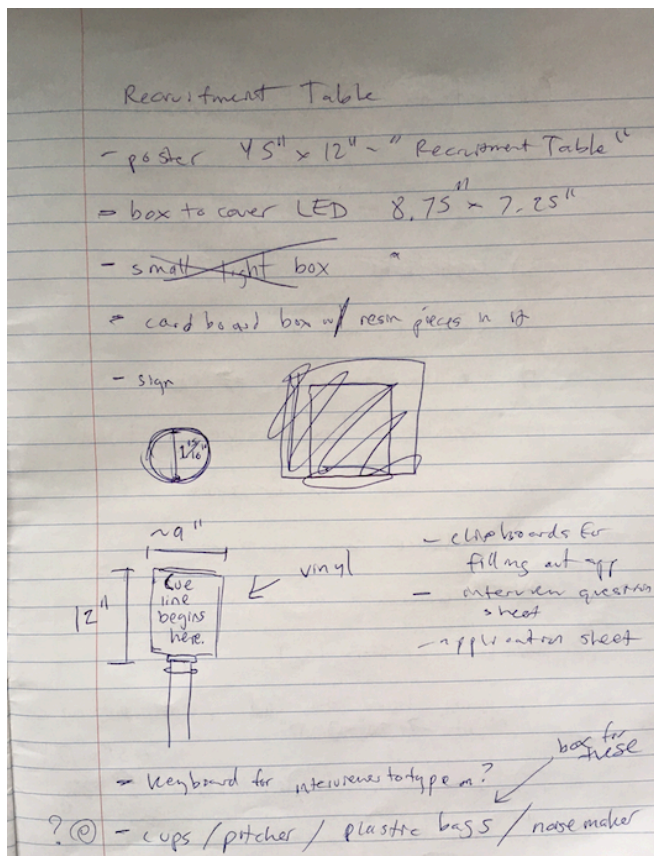 Recruitment Table
- poster 45" x 12" ~ " Recruitment Table "
- box to cover LED 8.75" x 7.25"
- small light box
- cardboard box w/ resin pieces in it
- sign
1 15/16"
~9"
12"
Cue
line
begins
here.
vinyl
- clipboards for
filling out app
- interview question
sheet
- application sheet
- Keyboard for interviewer to type on?
box for
these
? @ - cups / pitcher / plastic bags / noise maker